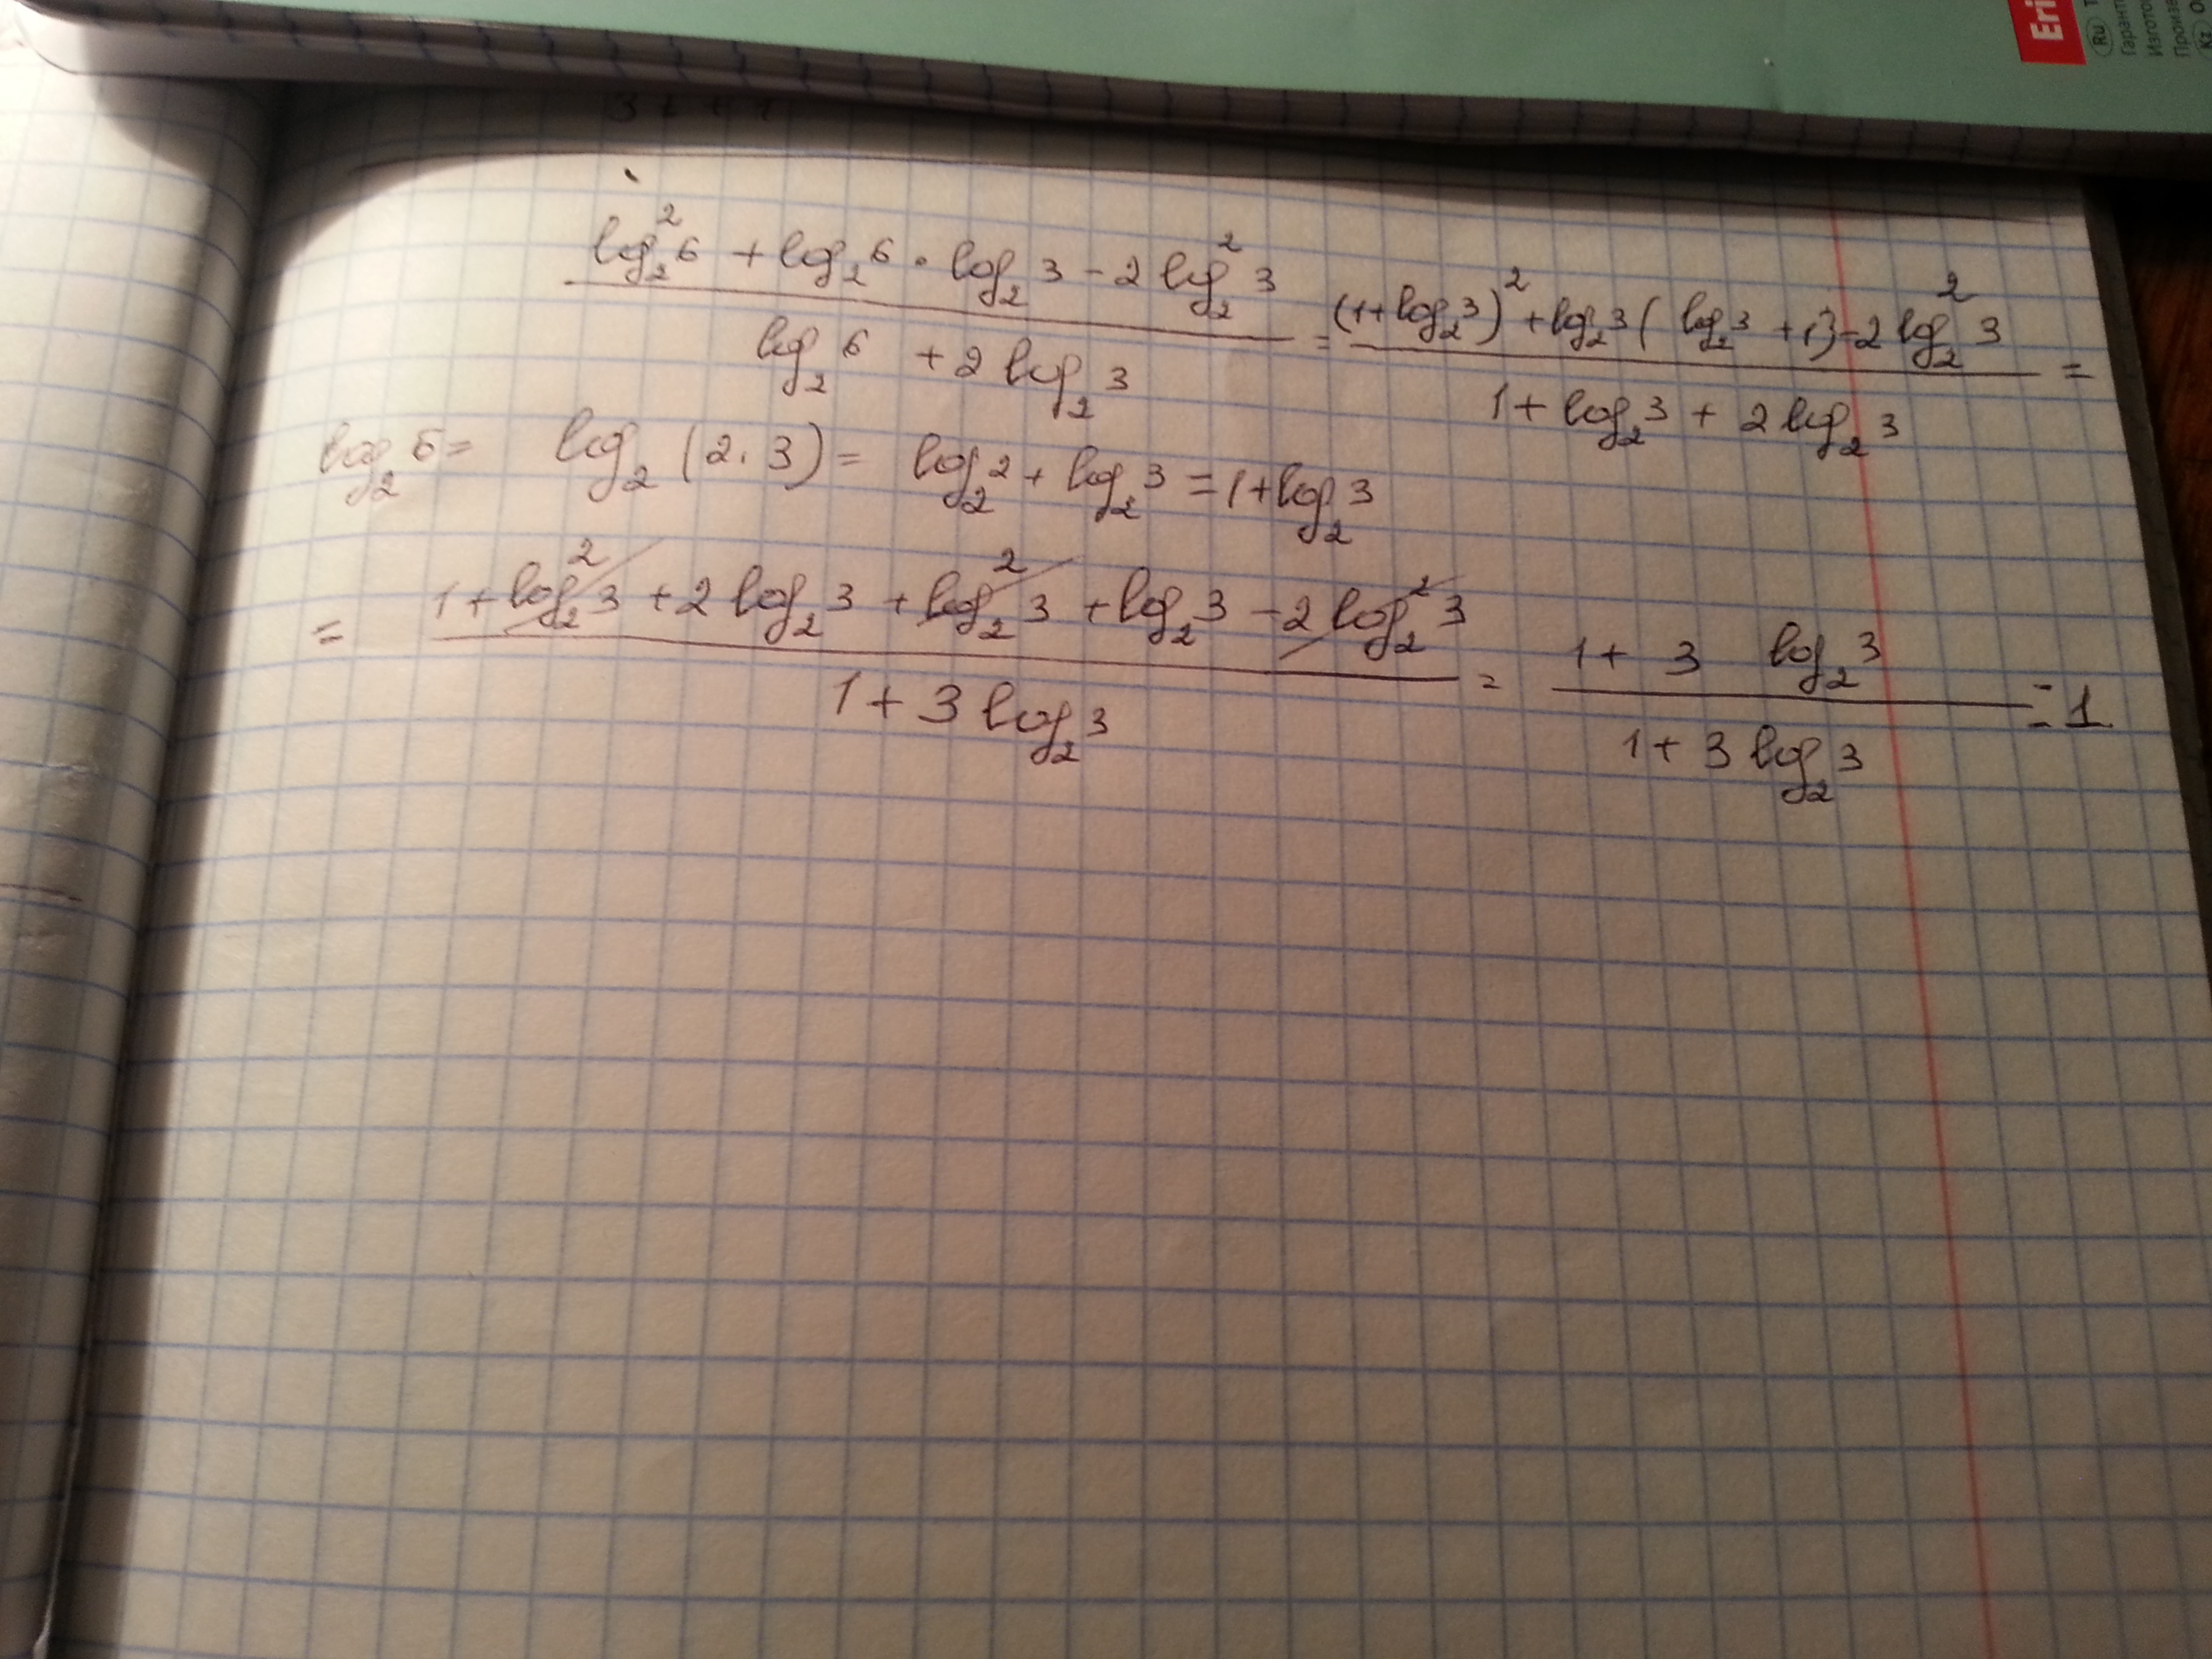 (log₂²6 + log₂6 · log₂3 - 2log₂²3) / (log₂6 + 2log₂3) = ((1+log₂3)² + log₂3(log₂3 + 1) - 2log₂²3) / (1 + log₂3 + 2log₂3) =
log₂6 = log₂(2·3) = log₂2 + log₂3 = 1+log₂3
= (1 + log₂²3 + 2log₂3 + log₂²3 + log₂3 - 2log₂²3) / (1 + 3log₂3) = (1 + 3 log₂3) / (1 + 3log₂3) = 1
Eri
Ru
Kz